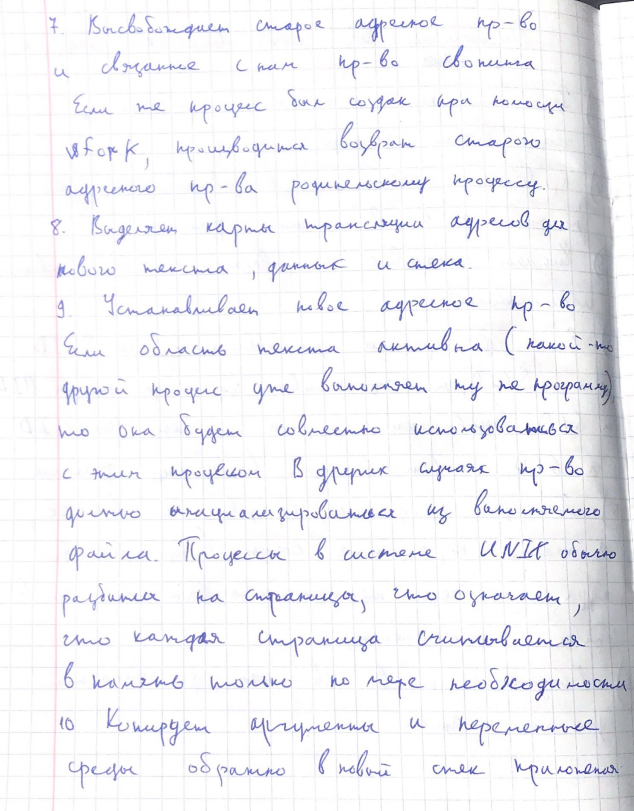 7. Высвобождает старое адресное пр-во
и связанное с ним пр-во свопинга
Если же процесс был создан при помощи
vfork, производится возврат старого
адресного пр-ва родительскому процессу.
8. Выделяет карты трансляции адресов для
нового текста, данных и стека.
9. Устанавливает новое адресное пр-во
Если область текста активна (какой-то
другой процесс уже выполняет ту же программу)
то она будет совместно использоваться
с этим процессом В других случаях пр-во
должно инициализироваться из выполняемого
файла. Процессы в системе UNIX обычно
разбиты на страницы, что означает,
что каждая страница считывается
в память только по мере необходимости
10 Копирует аргументы и переменные
среды обратно в новый стек приложения